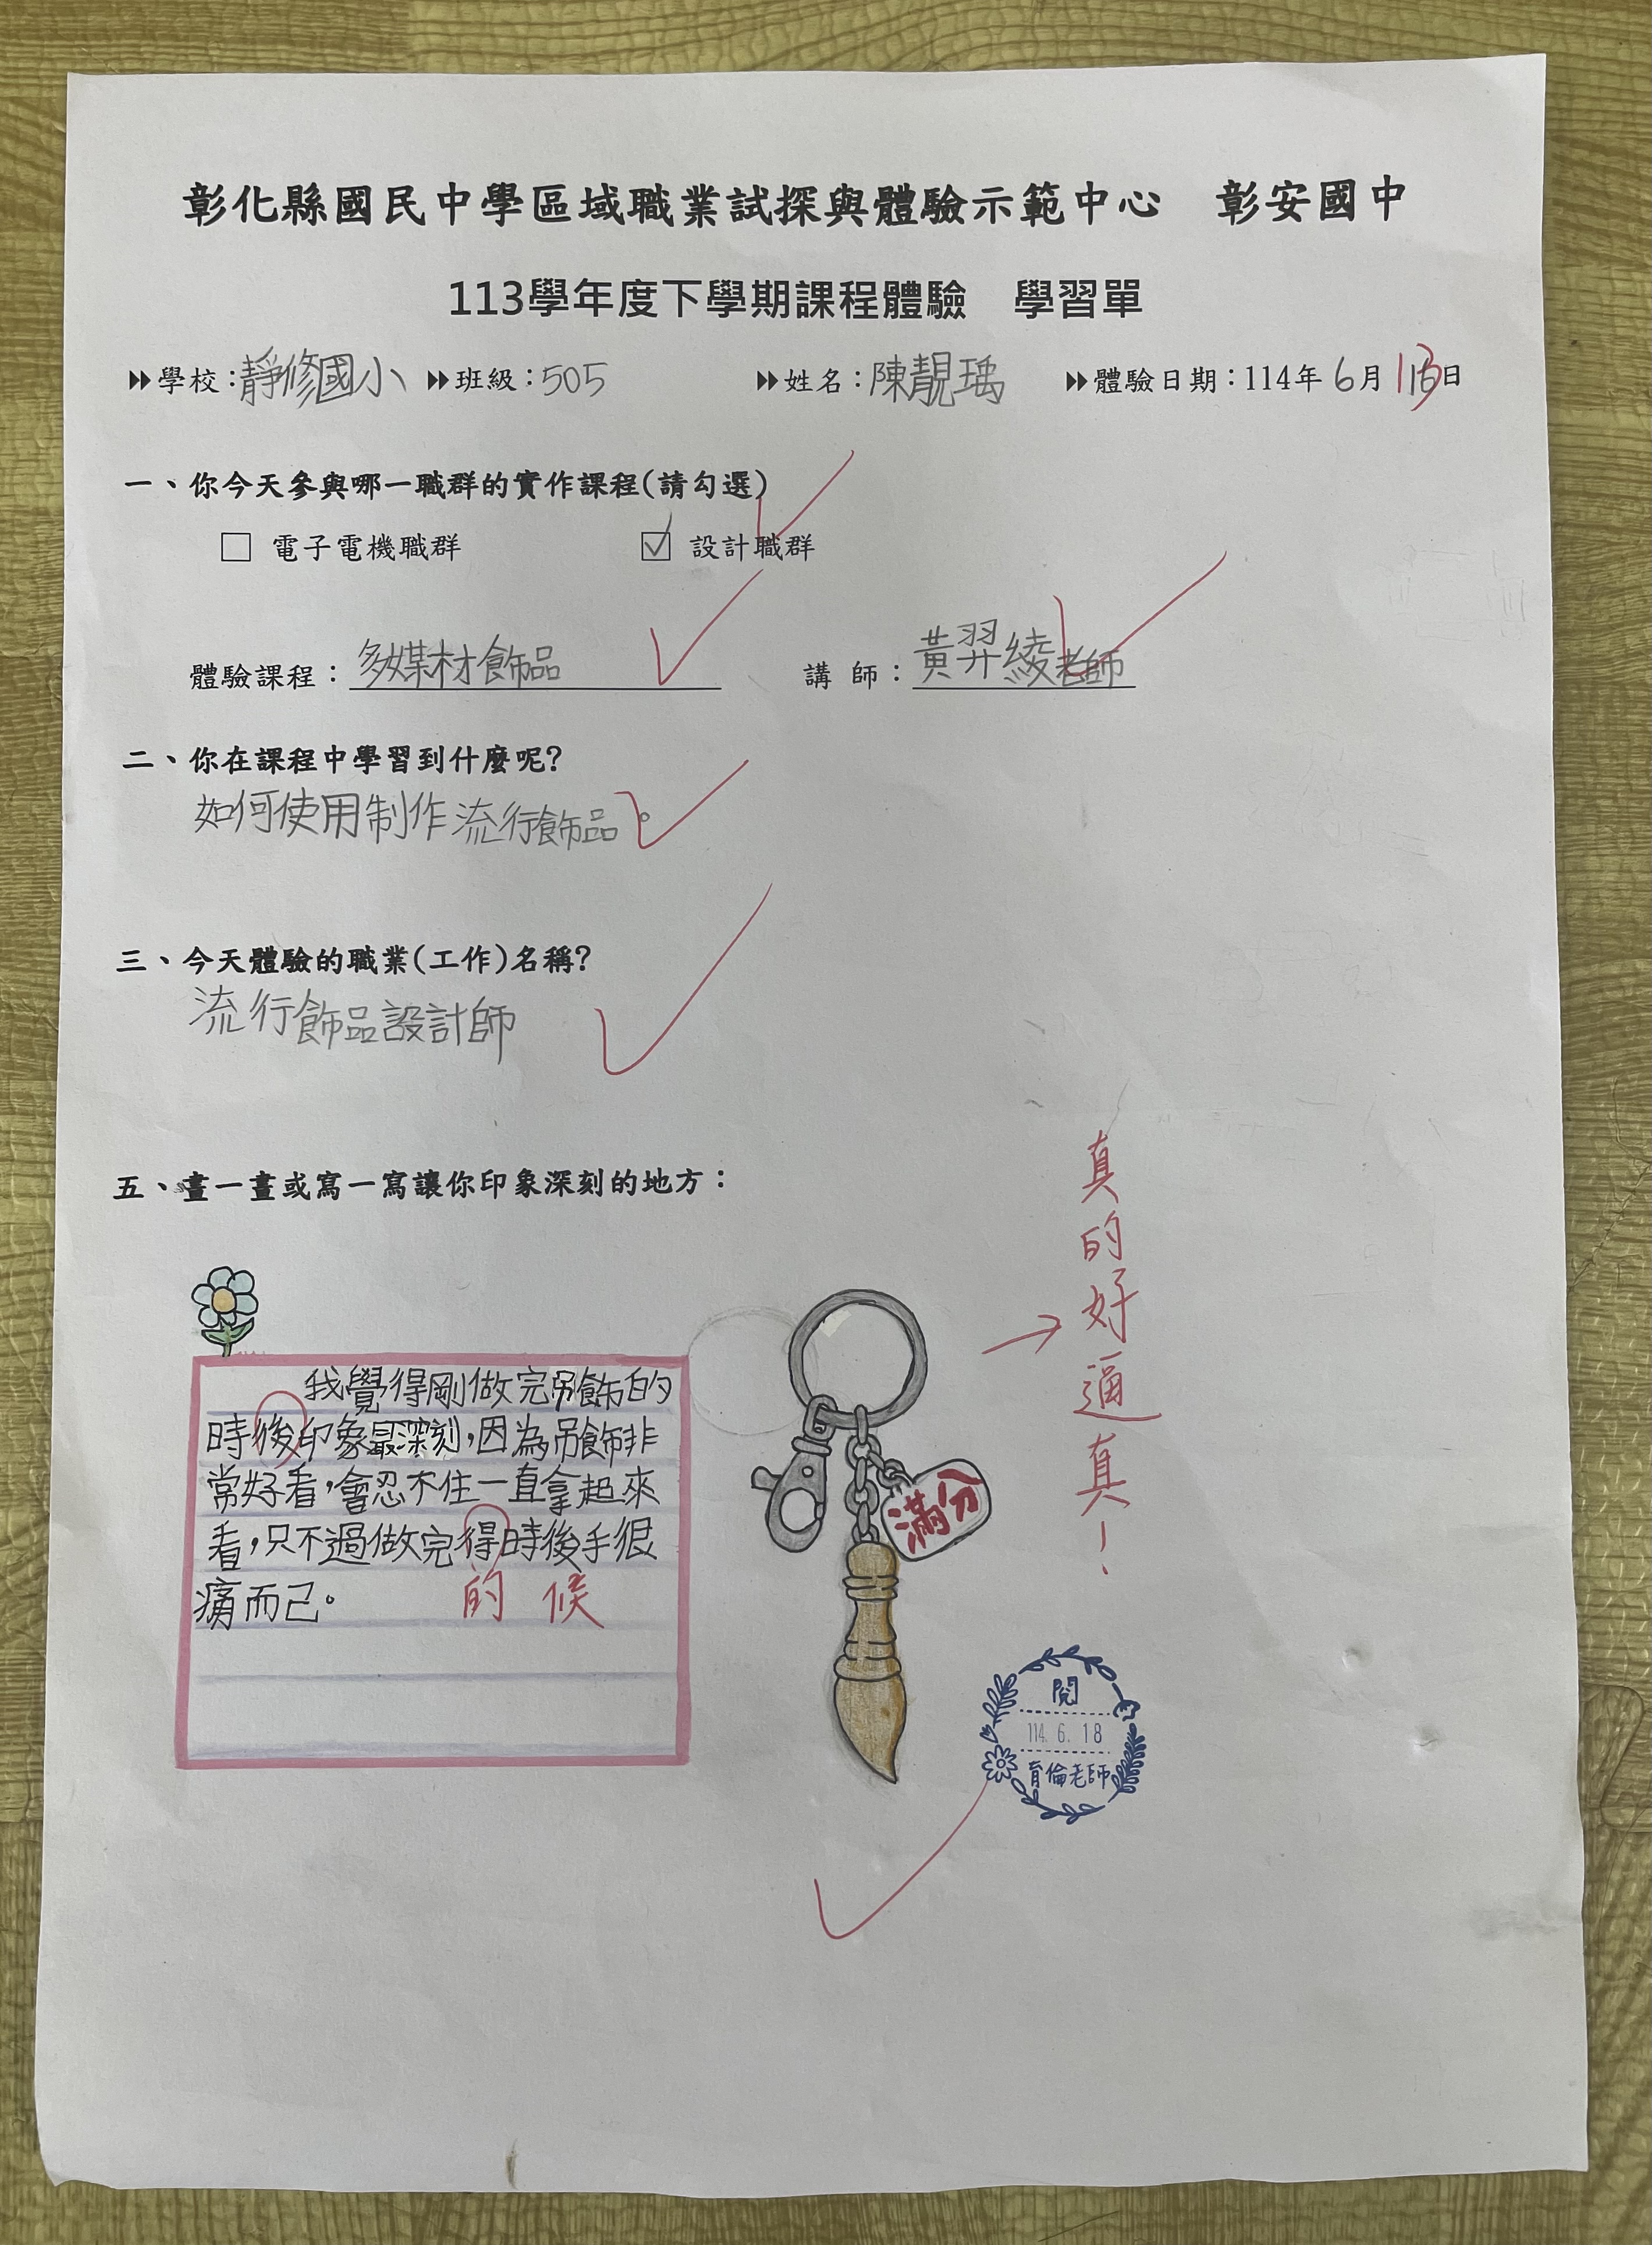 彰化縣國民中學區域職業試探與體驗示範中心　彰安國中
113學年度下學期課程體驗　學習單
學校：靜修國小 班級：505 姓名：陳靚瑀 體驗日期：114年6月13日
一、你今天參與哪一職群的實作課程(請勾選)
□ 電子電機職群 ☑ 設計職群
體驗課程：多媒材飾品 講師：黃羿綾老師
二、你在課程中學習到什麼呢?
如何使用制作流行飾品。
三、今天體驗的職業(工作)名稱?
流行飾品設計師
五、畫一畫或寫一寫讓你印象深刻的地方：
我覺得剛做完吊飾的
時後印象最深刻，因為吊飾非
常好看，會忍不住一直拿起來
看，只不過做完得時後手很
痛而己。
的 候
滿分
→真的好逼真！
閱
114. 6. 18
育倫老師